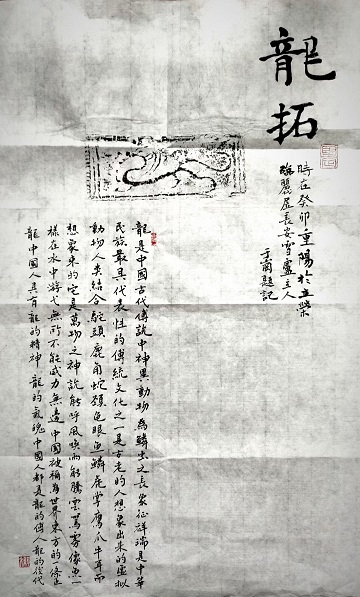 龍拓
時在癸卯重陽於
居長安雪盧主人
于南題記
龍是中國古代傳說中神異動物為鱗虫之長象征祥瑞是中華
民族最具代表性的傳統文化之一是古老的人想象出來的虛拟
動物人类结合駝頭鹿角蛇頸龟眼魚鱗虎掌鷹爪牛耳而
想象來的它是萬物之神說能呼風喚雨能騰雲駕雾像魚一
樣在水中游弋無所不能威力無邊中國被稱為世界东方的
龍中國人具有龍的精神龍的氣魄中國人都是龍的傳人龍的後代